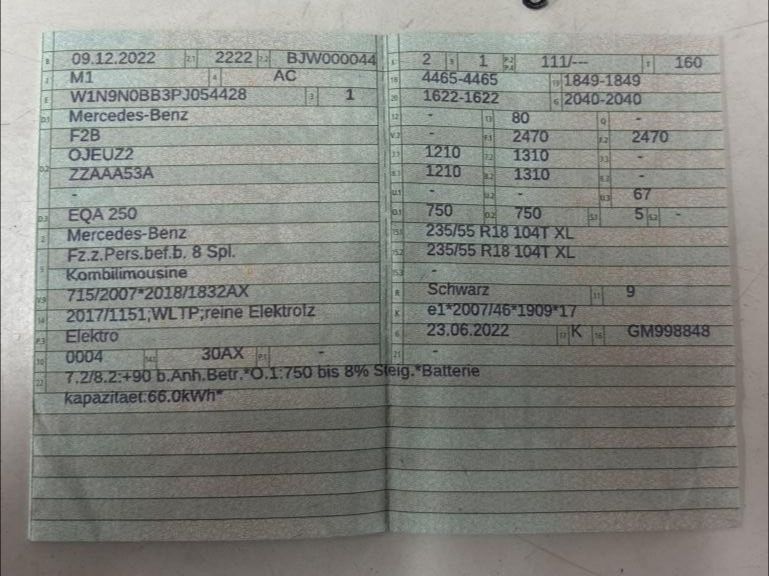 B 09.12.2022 2.1 2222 2.2 BJW000044
J M1 4 AC
E W1N9N0BB3PJ054428 3 1
D.1 Mercedes-Benz
F2B
D.2 OJEUZ2
ZZAAA53A
-
D.3 EQA 250
2 Mercedes-Benz
5 Fz.z.Pers.bef.b. 8 Spl.
Kombilimousine
V.9 715/2007*2018/1832AX
14 2017/1151;WLTP;reine Elektrofz
P.3 Elektro
10 0004 14.1 30AX P.1 -
22 7.2/8.2:+90 b.Anh.Betr.*O.1:750 bis 8% Steig.*Batterie
kapazitaet:66.0kWh*
L 2 9 1 P.2 P.4 111/--- T 160
18 4465-4465 19 1849-1849
20 1622-1622 G 2040-2040
12 - 13 80 Q -
V.7 - F.1 2470 F.2 2470
7.1 1210 7.2 1310 7.3 -
8.1 1210 8.2 1310 8.3 -
U.1 - U.2 - U.3 67
O.1 750 O.2 750 S.1 5 S.2 -
15.1 235/55 R18 104T XL
15.2 235/55 R18 104T XL
15.3 -
R Schwarz 11 9
K e1*2007/46*1909*17
6 23.06.2022 17 K 16 GM998848
21 -